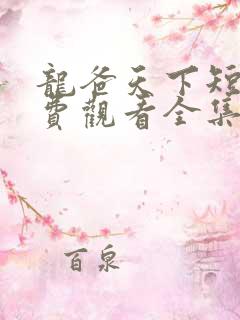 龍爸天下短
費觀看全集
百泉